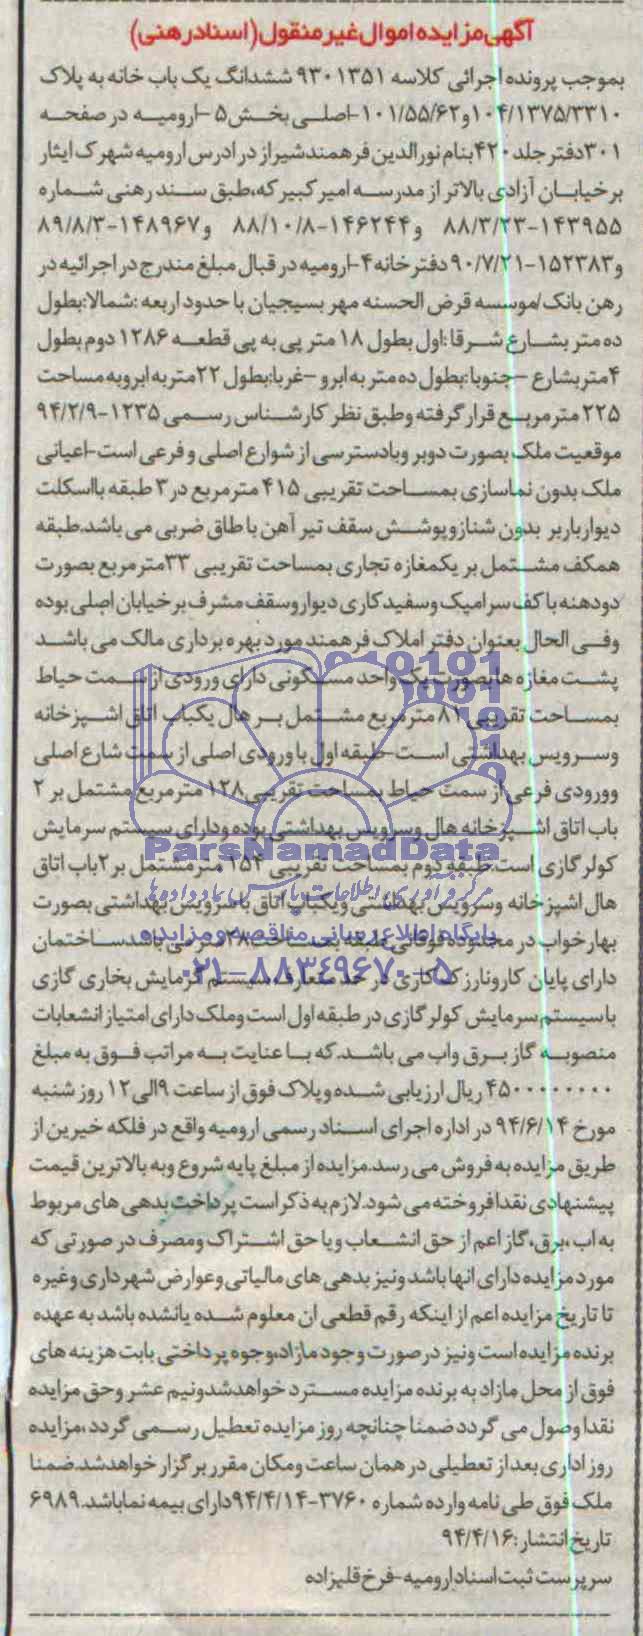 آگهی مزایده اموال غیر منقول (اسناد رهنی)
بموجب پرونده اجرائی کلاسه ۹۳۰۱۳۵۱ ششدانگ یک باب خانه به پلاک
۱۰۴/۱۳۷۵/۳۳۱۰ و ۱۰۱/۵۵/۶۲-اصلی بخش ۵ -ارومیه در صفحه
۳۰۱ دفتر جلد ۴۲۰ بنام نورالدین فرهمند شیراز در ادرس ارومیه شهرک ایثار
بر خیابان آزادی بالاتر از مدرسه امیر کبیر که، طبق سند رهنی شماره
۱۴۳۹۵۵-۸۸/۳/۲۳ و ۱۴۶۲۴۴-۸۸/۱۰/۸ و ۱۴۸۹۶۷-۸۹/۸/۳
و ۱۵۲۳۸۳-۹۰/۷/۲۱ دفتر خانه ۴-ارومیه در قبال مبلغ مندرج در اجرائیه در
رهن بانک/موسسه قرض الحسنه مهر بسیجیان با حدود اربعه :شمالا:بطول
ده متر بشارع شرقا:اول بطول ۱۸ متر پی به پی قطعه ۱۲۸۶ دوم بطول
۴ متر بشارع -جنوبا:بطول ده متر به ابرو -غربا:بطول ۲۲ متر به ابرو به مساحت
۲۲۵ متر مربع قرار گرفته و طبق نظر کارشناس رسمی ۱۲۳۵-۹۴/۲/۹
موقعیت ملک بصورت دو بر و با دسترسی از شوارع اصلی و فرعی است-اعیانی
ملک بدون نماسازی بمساحت تقریبی ۴۱۵ متر مربع در ۳ طبقه با اسکلت
دیوار باربر بدون شناز و پوشش سقف تیر آهن با طاق ضربی می باشد. طبقه
همکف مشتمل بر یکمغازه تجاری بمساحت تقریبی ۳۳ متر مربع بصورت
دو دهنه با کف سرامیک و سفید کاری دیوار و سقف مشرف بر خیابان اصلی بوده
وفی الحال بعنوان دفتر املاک فرهمند مورد بهره برداری مالک می باشد
پشت مغازه ها بصورت یک واحد مسکونی دارای ورودی از سمت حیاط
بمساحت تقریبی ۸۱ متر مربع مشتمل بر هال یکباب اتاق اشپزخانه
و سرویس بهداشتی است-طبقه اول با ورودی اصلی از سمت شارع اصلی
و ورودی فرعی از سمت حیاط بمساحت تقریبی ۱۲۸ متر مربع مشتمل بر ۲
باب اتاق اشپزخانه هال و سرویس بهداشتی بوده و دارای سیستم سرمایش
کولر گازی است. طبقه دوم بمساحت تقریبی ۱۵۴ متر مشتمل بر ۲ باب اتاق
هال اشپزخانه و سرویس بهداشتی و یکباب اتاق با سرویس بهداشتی بصورت
بهار خواب در محدوده فوقانی طبقه بمساحت ۲۸ متر می باشد ساختمان
دارای پایان کار و نازک کاری در حد متعارف سیستم گرمایش بخاری گازی
با سیستم سرمایش کولر گازی در طبقه اول است و ملک دارای امتیاز انشعابات
منصوبه گاز برق و اب می باشد. که با عنایت به مراتب فوق به مبلغ
۴۵۰۰۰۰۰۰۰۰ ریال ارزیابی شده و پلاک فوق از ساعت ۹ الی ۱۲ روز شنبه
مورخ ۹۴/۶/۱۴ در اداره اجرای اسناد رسمی ارومیه واقع در فلکه خیرین از
طریق مزایده به فروش می رسد. مزایده از مبلغ پایه شروع و به بالاترین قیمت
پیشنهادی نقدا فروخته می شود. لازم به ذکر است پرداخت بدهی های مربوط
به اب ،برق، گاز اعم از حق انشعاب و یا حق اشتراک و مصرف در صورتی که
مورد مزایده دارای انها باشد و نیز بدهی های مالیاتی و عوارض شهرداری و غیره
تا تاریخ مزایده اعم از اینکه رقم قطعی ان معلوم شده یا نشده باشد به عهده
برنده مزایده است و نیز در صورت وجود مازاد، وجوه پرداختی بابت هزینه های
فوق از محل مازاد به برنده مزایده مسترد خواهد شد و نیم عشر و حق مزایده
نقدا وصول می گردد ضمنا چنانچه روز مزایده تعطیل رسمی گردد ،مزایده
روز اداری بعد از تعطیلی در همان ساعت و مکان مقرر برگزار خواهد شد. ضمنا
ملک فوق طی نامه وارده شماره ۳۷۶۰-۹۴/۴/۱۴ دارای بیمه نما باشد. ۶۹۸۹
تاریخ انتشار: ۹۴/۴/۱۶
سرپرست ثبت اسناد ارومیه-فرخ قلیزاده
ParsNamadData
مرکز فرآوری اطلاعات پارس نماد داده ها
پایگاه اطلاع رسانی مناقصه و مزایده
۰۲۱-۸۸۳۴۹۶۷۰-۵